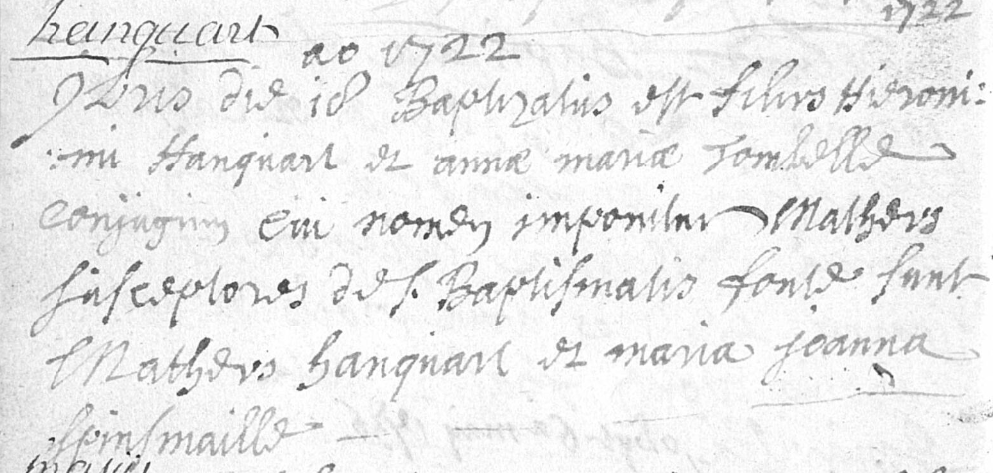 hanquart 1722
ao 1722
9bris die 18 Baptizatus est filius Hieroni=
=mi Hanquart et annæ mariæ Tombelle
Conjugum Cui nomen imponitur Matheus
suscseptores de s. Baptismatis fonte sunt
Matheus hanquart et maria joanna
spinsmaille